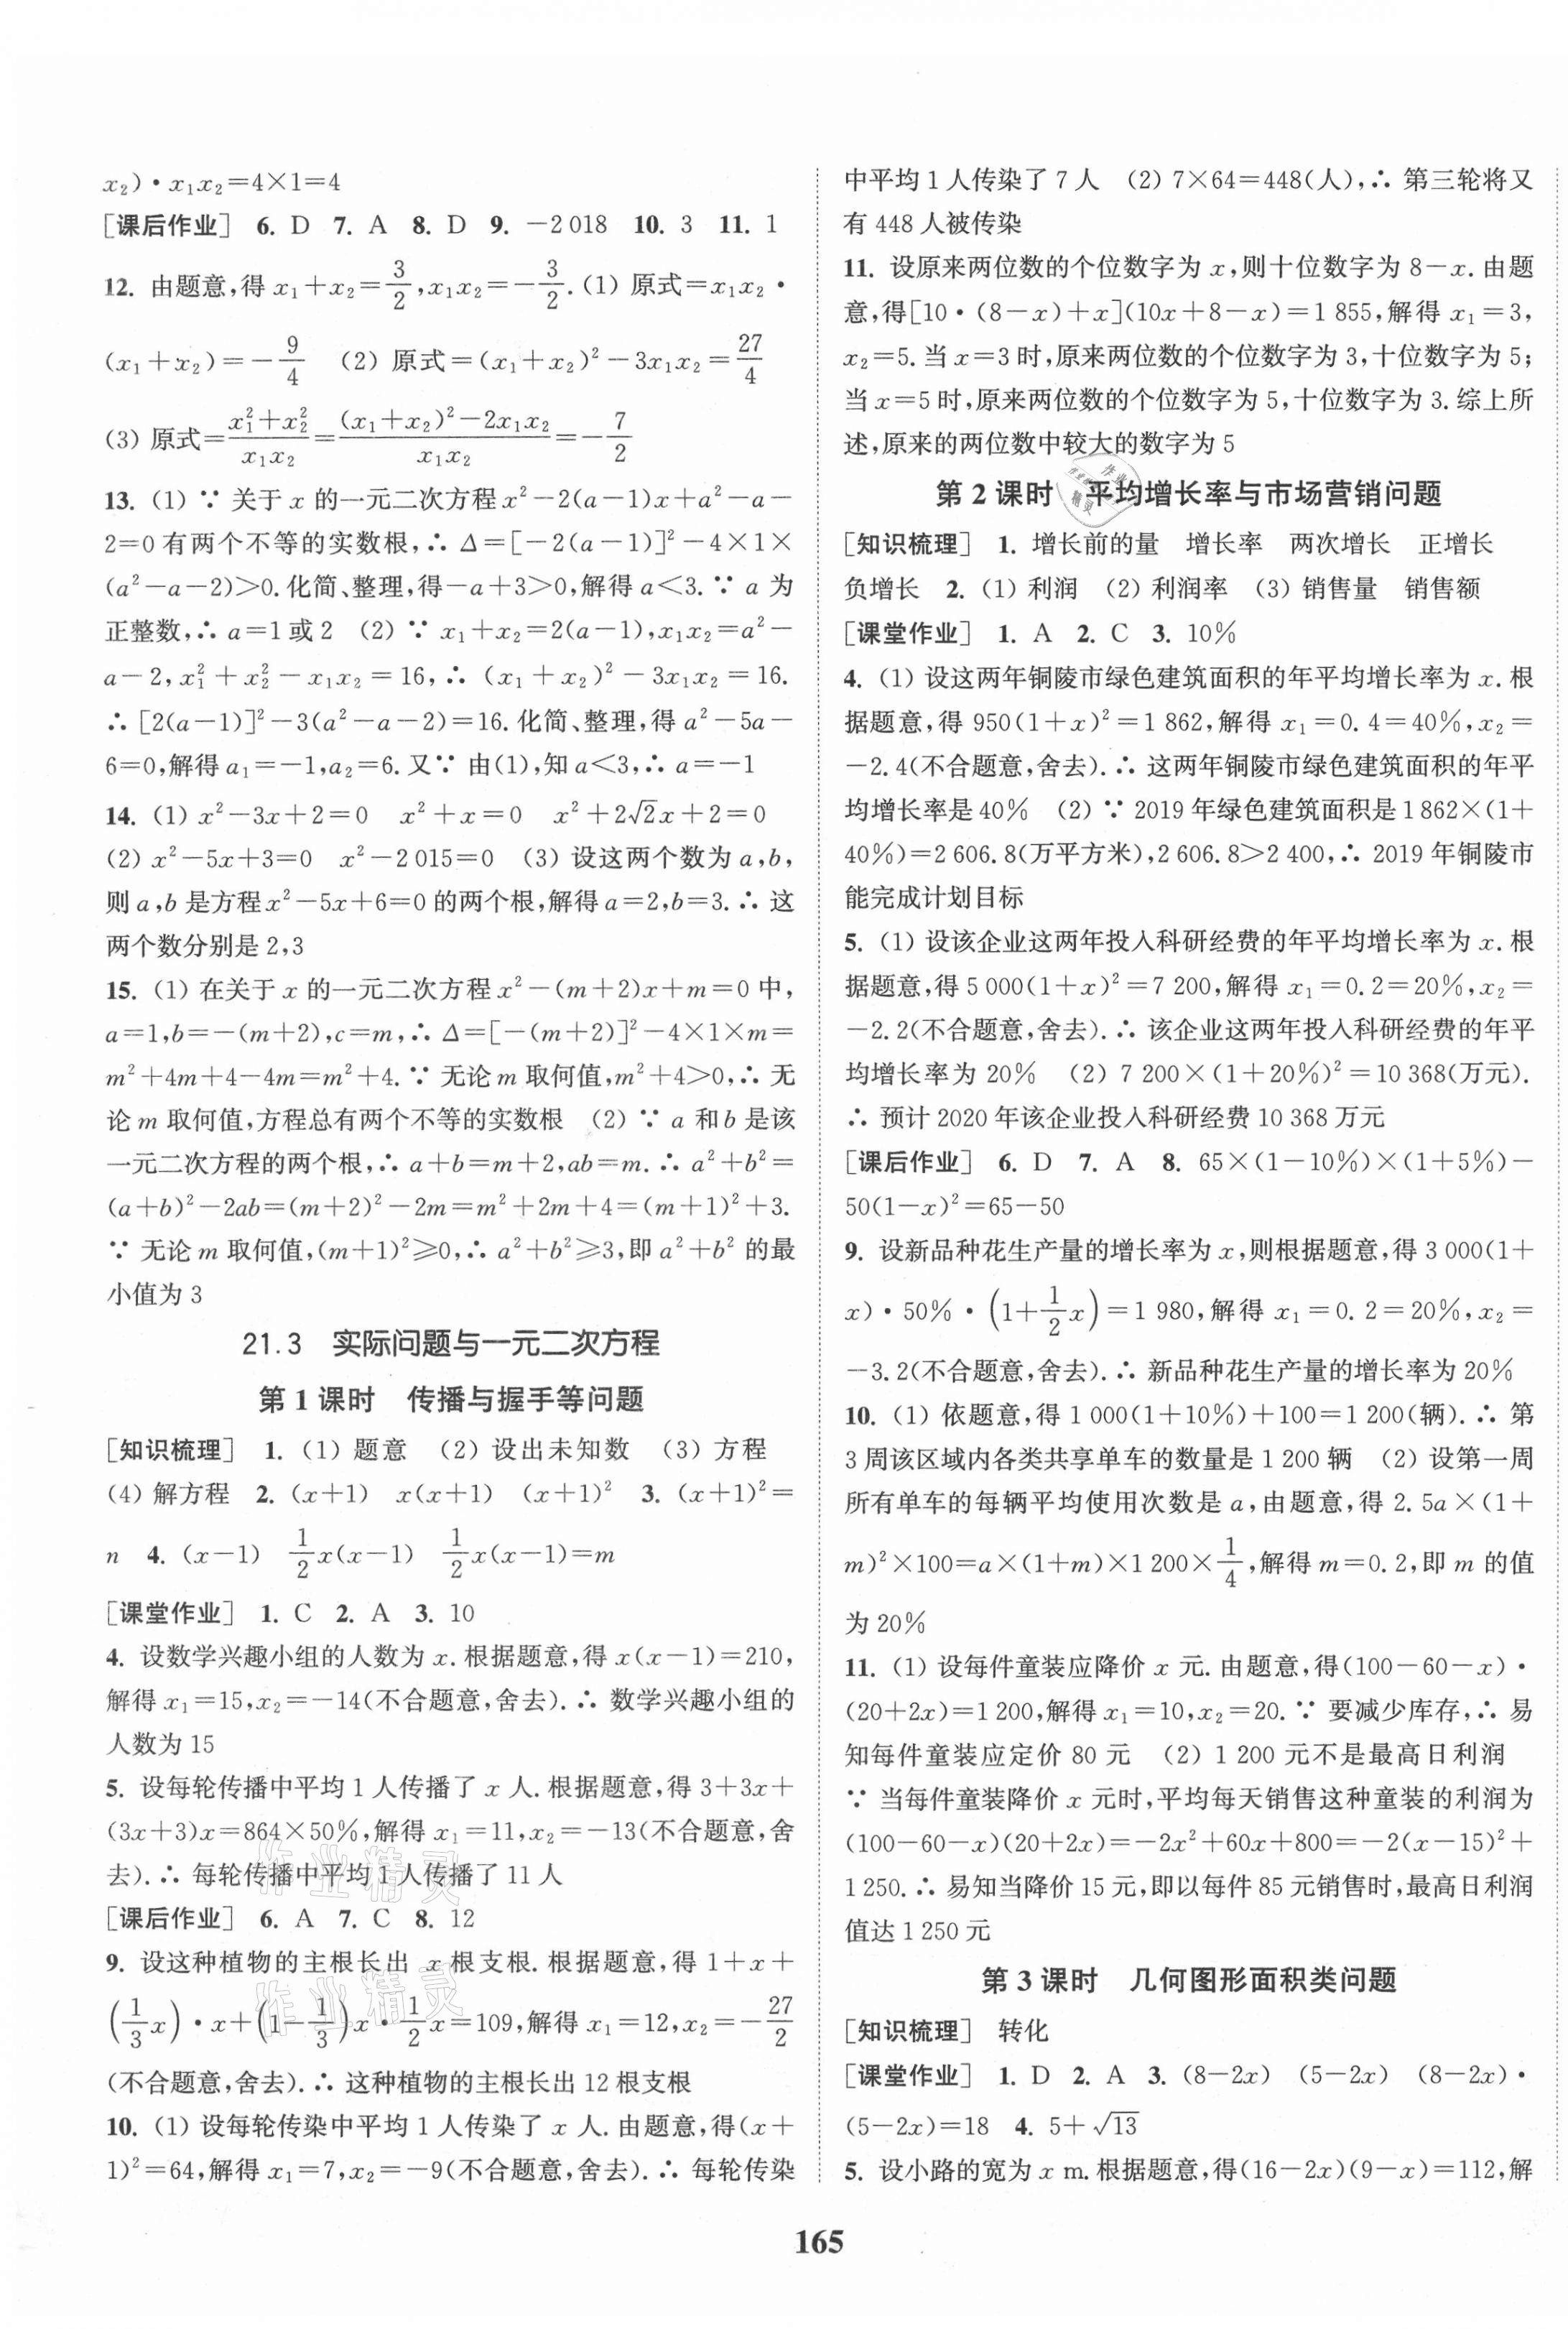 x₂)·x₁x₂=4×1=4
[课后作业] 6. D 7. A 8. D 9. -2 018 10. 3 11. 1
12. 由题意,得 x₁+x₂=3/2,x₁x₂=-3/2.(1) 原式=x₁x₂·
(x₁+x₂)=-9/4 (2) 原式=(x₁+x₂)²-3x₁x₂=27/4
(3) 原式=(x₁²+x₂²)/(x₁x₂)=((x₁+x₂)²-2x₁x₂)/(x₁x₂)=-7/2
13. (1) ∵ 关于 x 的一元二次方程 x²-2(a-1)x+a²-a-
2=0 有两个不等的实数根,∴ Δ=[-2(a-1)]²-4×1×
(a²-a-2)>0.化简、整理,得-a+3>0,解得 a<3.∵ a 为
正整数,∴ a=1 或 2 (2) ∵ x₁+x₂=2(a-1),x₁x₂=a²-
a-2,x₁²+x₂²-x₁x₂=16,∴ (x₁+x₂)²-3x₁x₂=16.
∴ [2(a-1)]²-3(a²-a-2)=16.化简、整理,得 a²-5a-
6=0,解得 a₁=-1,a₂=6.又∵ 由(1),知 a<3,∴ a=-1
14. (1) x²-3x+2=0 x²+x=0 x²+2√2x+2=0
(2) x²-5x+3=0 x²-2 015=0 (3) 设这两个数为 a,b,
则 a,b 是方程 x²-5x+6=0 的两个根,解得 a=2,b=3.∴ 这
两个数分别是 2,3
15. (1) 在关于 x 的一元二次方程 x²-(m+2)x+m=0 中,
a=1,b=-(m+2),c=m,∴ Δ=[-(m+2)]²-4×1×m=
m²+4m+4-4m=m²+4.∵ 无论 m 取何值,m²+4>0,∴ 无
论 m 取何值,方程总有两个不等的实数根 (2) ∵ a 和 b 是该
一元二次方程的两个根,∴ a+b=m+2,ab=m.∴ a²+b²=
(a+b)²-2ab=(m+2)²-2m=m²+2m+4=(m+1)²+3.
∵ 无论 m 取何值,(m+1)²≥0,∴ a²+b²≥3,即 a²+b² 的最
小值为 3
21.3 实际问题与一元二次方程
第 1 课时 传播与握手等问题
[知识梳理] 1. (1) 题意 (2) 设出未知数 (3) 方程
(4) 解方程 2. (x+1) x(x+1) (x+1)² 3. (x+1)²=
n 4. (x-1) 1/2x(x-1) 1/2x(x-1)=m
[课堂作业] 1. C 2. A 3. 10
4. 设数学兴趣小组的人数为 x.根据题意,得 x(x-1)=210,
解得 x₁=15,x₂=-14(不合题意,舍去).∴ 数学兴趣小组的
人数为 15
5. 设每轮传播中平均 1 人传播了 x 人.根据题意,得 3+3x+
(3x+3)x=864×50%,解得 x₁=11,x₂=-13(不合题意,舍
去).∴ 每轮传播中平均 1 人传播了 11 人
[课后作业] 6. A 7. C 8. 12
9. 设这种植物的主根长出 x 根支根.根据题意,得 1+x+
(1/3x)·x+(1-1/3)x·1/2x=109,解得 x₁=12,x₂=-27/2
(不合题意,舍去).∴ 这种植物的主根长出 12 根支根
10. (1) 设每轮传染中平均 1 人传染了 x 人.由题意,得(x+
1)²=64,解得 x₁=7,x₂=-9(不合题意,舍去).∴ 每轮传染
中平均 1 人传染了 7 人 (2) 7×64=448(人),∴ 第三轮将又
有 448 人被传染
11. 设原来两位数的个位数字为 x,则十位数字为 8-x.由题
意,得[10·(8-x)+x](10x+8-x)=1 855,解得 x₁=3,
x₂=5.当 x=3 时,原来两位数的个位数字为 3,十位数字为 5;
当 x=5 时,原来两位数的个位数字为 5,十位数字为 3.综上所
述,原来的两位数中较大的数字为 5
第 2 课时 平均增长率与市场营销问题
[知识梳理] 1. 增长前的量 增长率 两次增长 正增长
负增长 2. (1) 利润 (2) 利润率 (3) 销售量 销售额
[课堂作业] 1. A 2. C 3. 10%
4. (1) 设这两年铜陵市绿色建筑面积的年平均增长率为 x.根
据题意,得 950(1+x)²=1 862,解得 x₁=0.4=40%,x₂=
-2.4(不合题意,舍去).∴ 这两年铜陵市绿色建筑面积的年平
均增长率是 40% (2) ∵ 2019 年绿色建筑面积是 1 862×(1+
40%)=2 606.8(万平方米),2 606.8>2 400,∴ 2019 年铜陵市
能完成计划目标
5. (1) 设该企业这两年投入科研经费的年平均增长率为 x.根
据题意,得 5 000(1+x)²=7 200,解得 x₁=0.2=20%,x₂=
-2.2(不合题意,舍去).∴ 该企业这两年投入科研经费的年平
均增长率为 20% (2) 7 200×(1+20%)²=10 368(万元).
∴ 预计 2020 年该企业投入科研经费 10 368 万元
[课后作业] 6. D 7. A 8. 65×(1-10%)×(1+5%)-
50(1-x)²=65-50
9. 设新品种花生产量的增长率为 x,则根据题意,得 3 000(1+
x)·50%·(1+1/2x)=1 980,解得 x₁=0.2=20%,x₂=
-3.2(不合题意,舍去).∴ 新品种花生产量的增长率为 20%
10. (1) 依题意,得 1 000(1+10%)+100=1 200(辆).∴ 第
3 周该区域内各类共享单车的数量是 1 200 辆 (2) 设第一周
所有单车的每辆平均使用次数是 a,由题意,得 2.5a×(1+
m)²×100=a×(1+m)×1 200×1/4,解得 m=0.2,即 m 的值
为 20%
11. (1) 设每件童装应降价 x 元.由题意,得(100-60-x)·
(20+2x)=1 200,解得 x₁=10,x₂=20.∵ 要减少库存,∴ 易
知每件童装应定价 80 元 (2) 1 200 元不是最高日利润
∵ 当每件童装降价 x 元时,平均每天销售这种童装的利润为
(100-60-x)(20+2x)=-2x²+60x+800=-2(x-15)²+
1 250.∴ 易知当降价 15 元,即以每件 85 元销售时,最高日利润
值达 1 250 元
第 3 课时 几何图形面积类问题
[知识梳理] 转化
[课堂作业] 1. D 2. A 3. (8-2x) (5-2x) (8-2x)·
(5-2x)=18 4. 5+√13
5. 设小路的宽为 x m.根据题意,得(16-2x)(9-x)=112,解
165
作业精灵
作业精灵